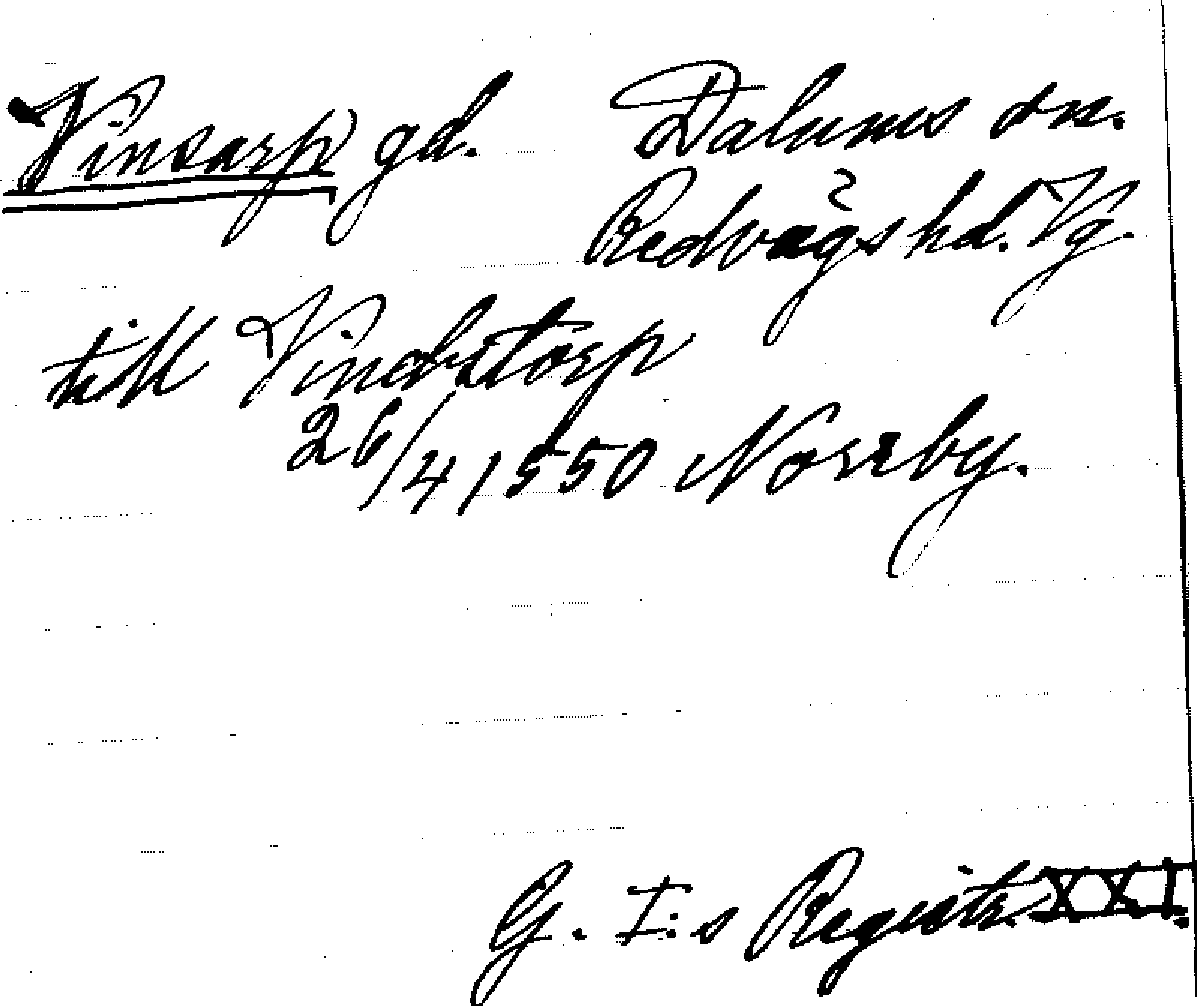 Vinsarp gd. Dalums sn.
Redvägs hd. Vg.
till Vindstorp
26/4 1550 Norrby.
G. I:s Registr. XXI.